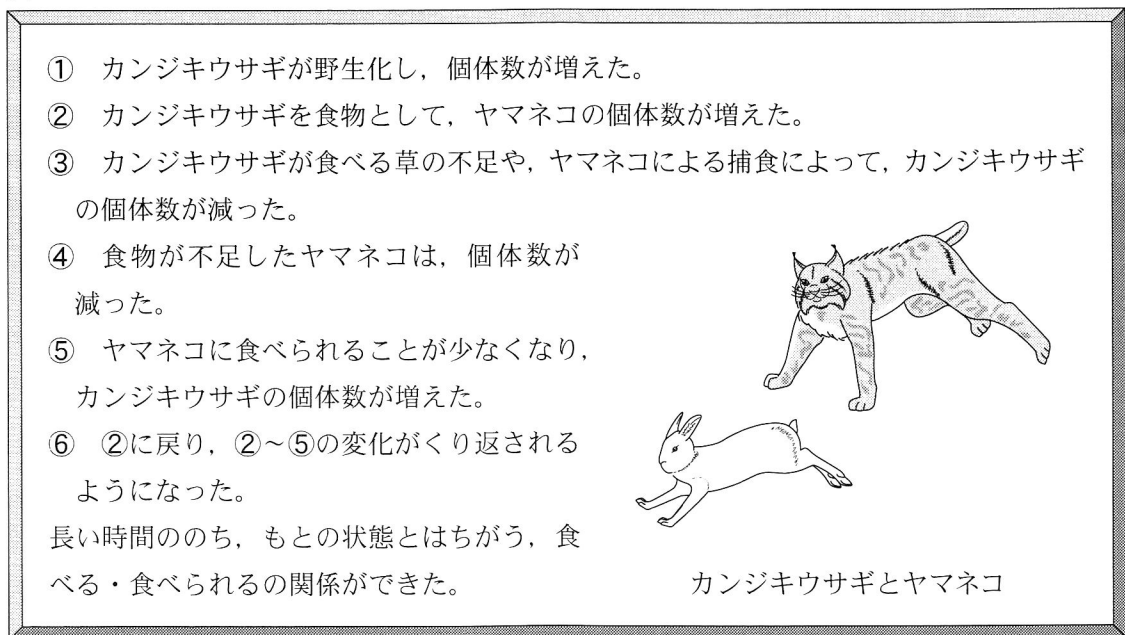 ① カンジキウサギが野生化し，個体数が増えた。
② カンジキウサギを食物として，ヤマネコの個体数が増えた。
③ カンジキウサギが食べる草の不足や，ヤマネコによる捕食によって，カンジキウサギ
の個体数が減った。
④ 食物が不足したヤマネコは，個体数が
減った。
⑤ ヤマネコに食べられることが少なくなり，
カンジキウサギの個体数が増えた。
⑥ ②に戻り，②～⑤の変化がくり返される
ようになった。
長い時間ののち，もとの状態とはちがう，食
べる・食べられるの関係ができた。
カンジキウサギとヤマネコ